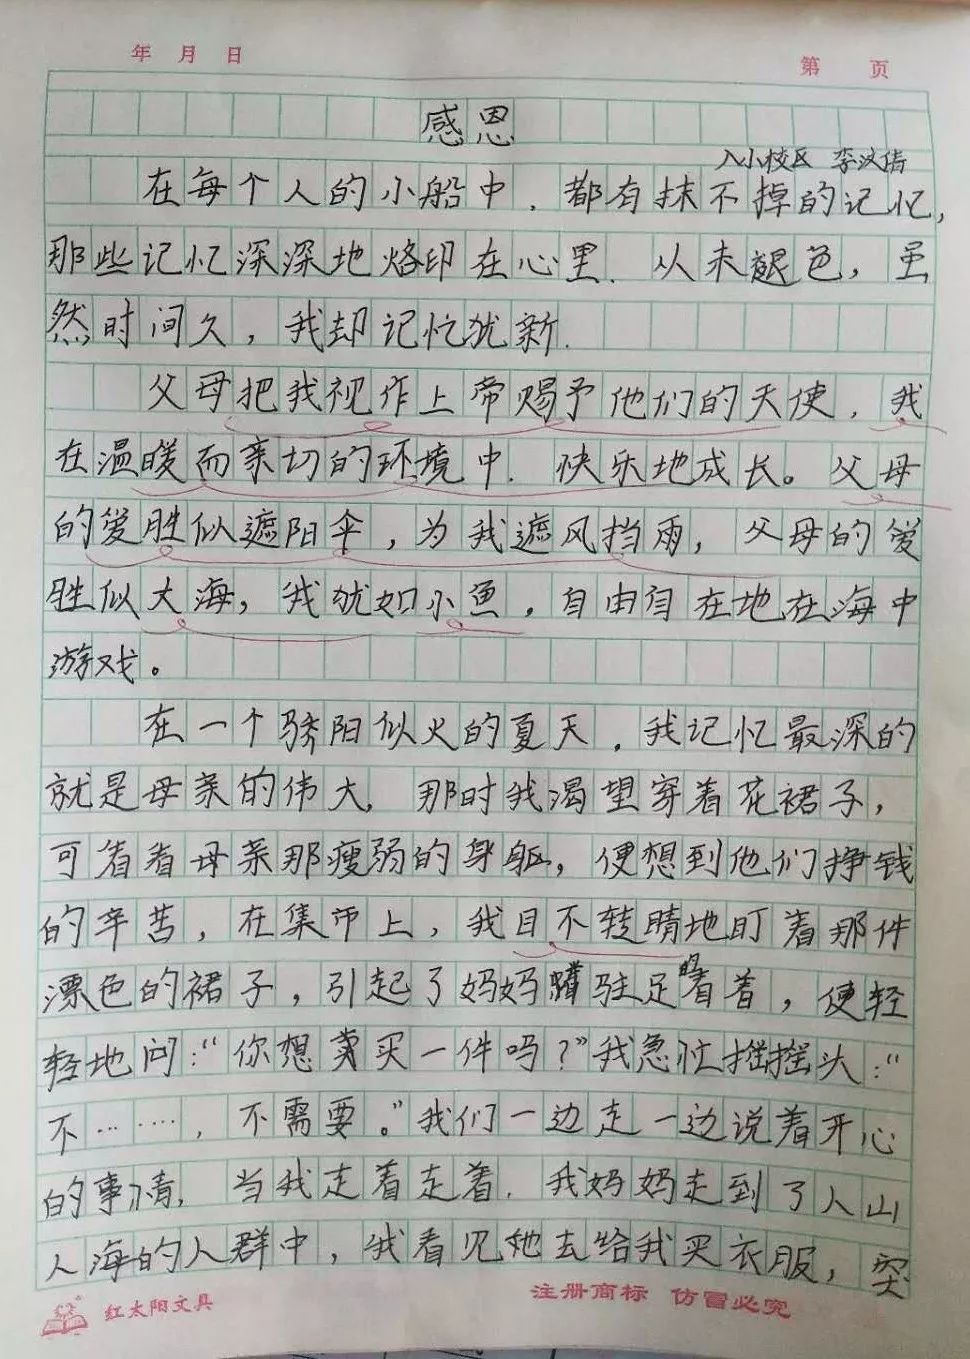 年 月 日
第 页
感恩
八小校区 李汶倩
在每个人的小船中,都有抹不掉的记忆,
那些记忆深深地烙印在心里.从未褪色,虽
然时间久,我却记忆犹新.
父母把我视作上帝赐予他们的天使,我
在温暖而亲切的环境中.快乐地成长。父母
的爱胜似遮阳伞,为我遮风挡雨,父母的爱
胜似大海,我犹如小鱼,自由自在地在海中
游戏。
在一个骄阳似火的夏天,我记忆最深的
就是母亲的伟大,那时我渴望穿着花裙子,
可看着母亲那瘦弱的身躯,便想到他们挣钱
的辛苦,在集市上,我目不转睛地盯着那件
漂色的裙子,引起了妈妈驻足看着,便轻
轻地问:“你想买一件吗?”我急忙摇摇头:“
不……,不需要。”我们一边走一边说着开心
的事情,当我走着走着.我妈妈走到了人山
人海的人群中,我看见她去给我买衣服,突
红太阳文具
注册商标 仿冒必究